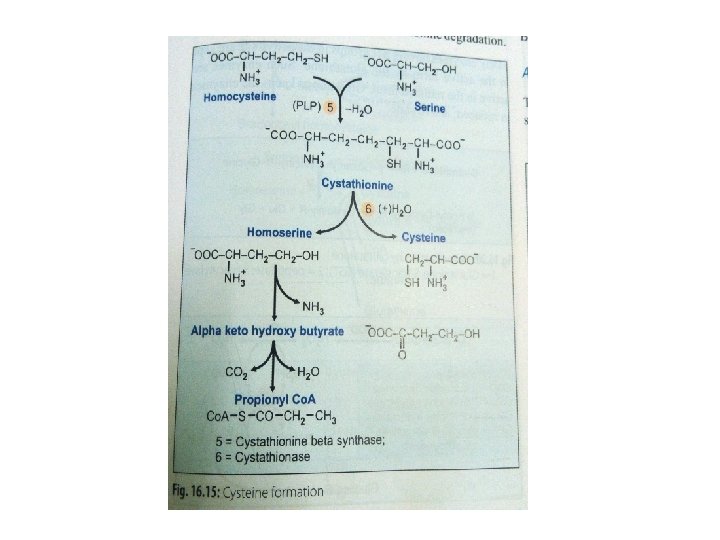 degradation.
⁻OOC–CH–CH₂–CH₂–SH
NH₃⁺
Homocysteine
⁻OOC–CH–CH₂–OH
NH₃⁺
Serine
(PLP) 5 –H₂O
⁻COO–CH–CH₂–CH₂–CH–CH–COO⁻
NH₃⁺ SH NH₃⁺
Cystathionine
6 (+)H₂O
Homoserine
Cysteine
⁻OOC–CH–CH₂–CH₂–OH
NH₃⁺
CH₂–CH–COO⁻
SH NH₃⁺
NH₃
Alpha keto hydroxy butyrate
⁻OOC–C–CH₂–CH₂–OH
O
CO₂ H₂O
Propionyl Co. A
Co. A–S–CO–CH₂–CH₃
5 = Cystathionine beta synthase;
6 = Cystathionase
Fig. 16.15: Cysteine formation